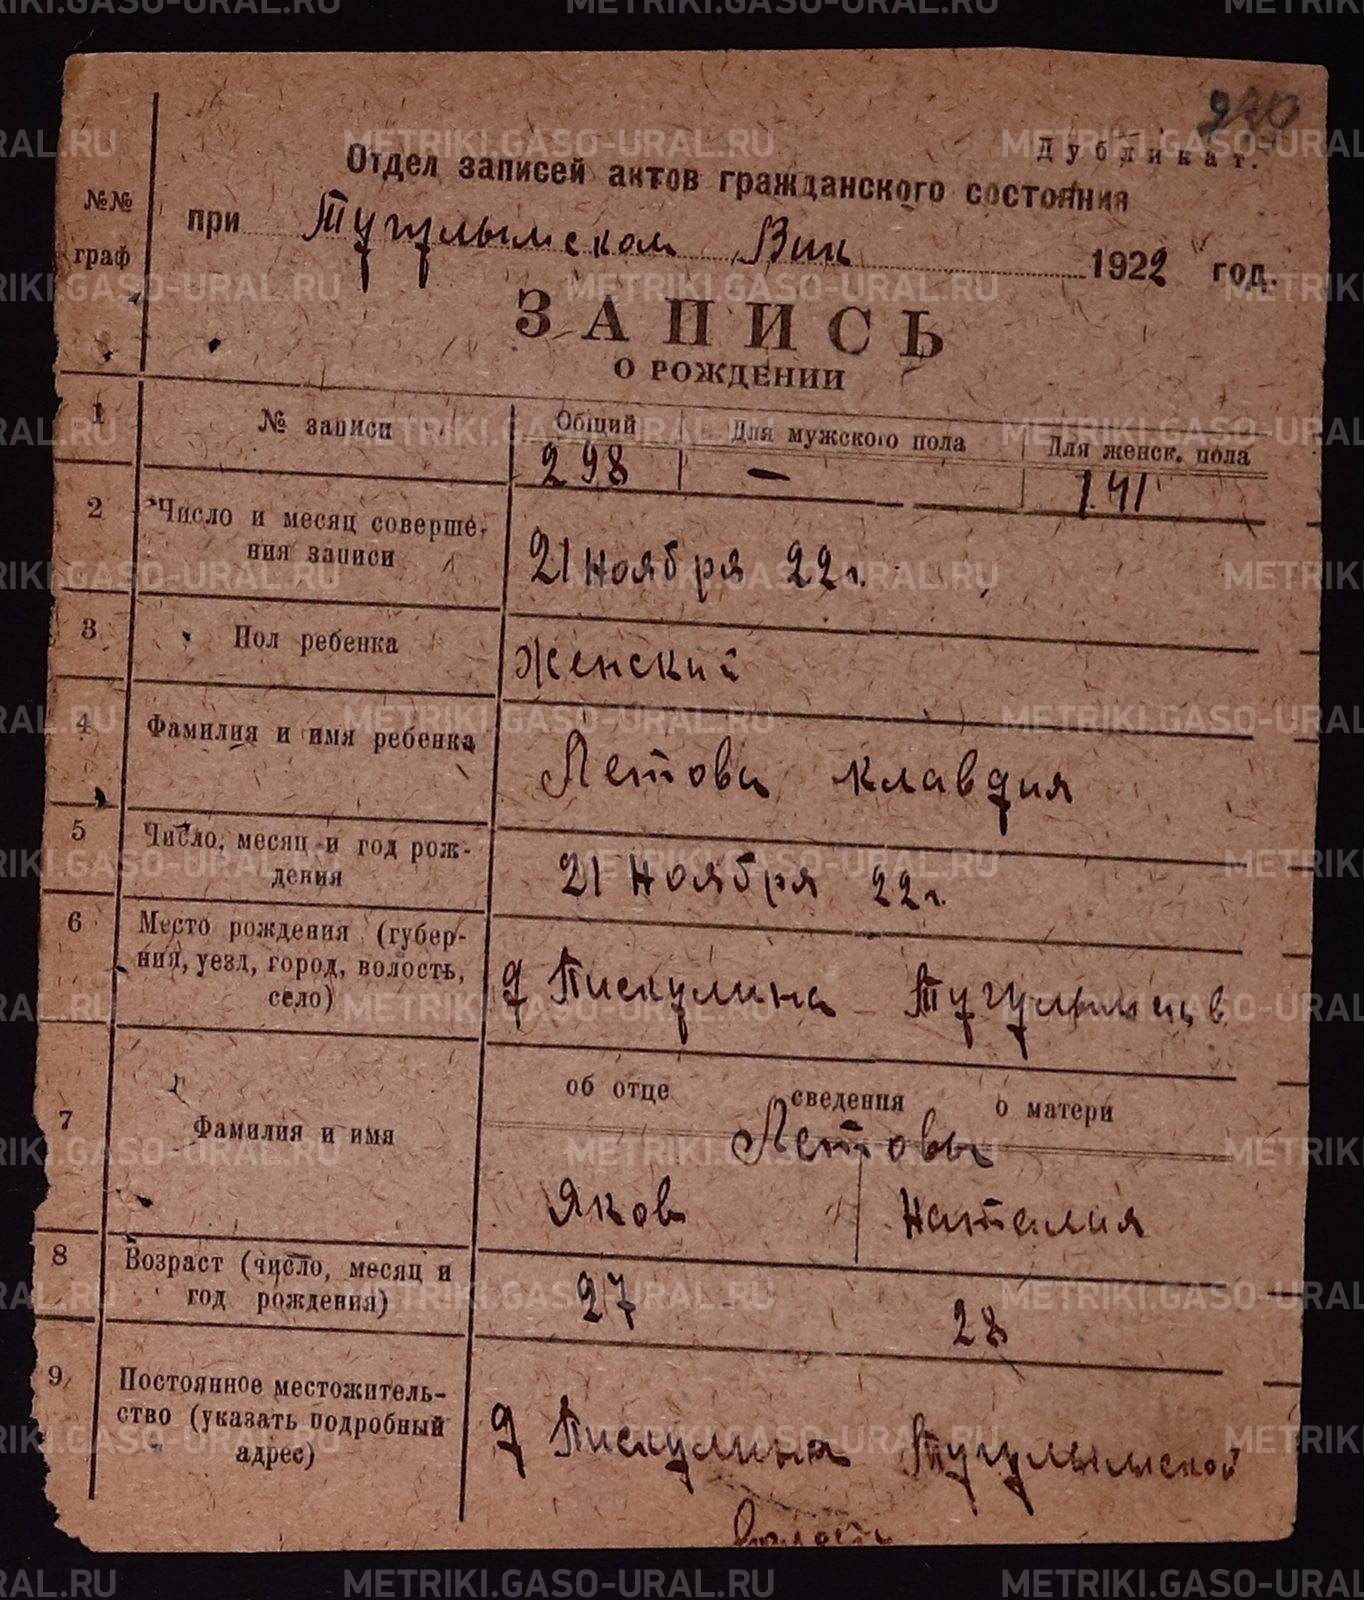 Дубликат.
Отдел записей актов гражданского состояния
№№ граф
при Тугулымском Вик 1922 год.
ЗАПИСЬ
О РОЖДЕНИИ
1 № записи Общий Для мужского пола Для женск. пола
298 — 141
2 Число и месяц соверше-
ния записи
21 Ноября 22 г.
3 Пол ребенка Женский
4 Фамилия и имя ребенка Летова Клавдия
5 Число, месяц и год рож-
дения
21 Ноября 22 г.
6 Место рождения (губер-
ния, уезд, город, волость,
село)
д Пискулина Тугулымск в
об отце сведения о матери
7 Фамилия и имя Летовы
Яков Наталия
8 Возраст (число, месяц и
год рождения)
27 28
9 Постоянное местожитель-
ство (указать подробный
адрес)
д Пискулина Тугулымской
METRIKI.GASO-URAL.RU